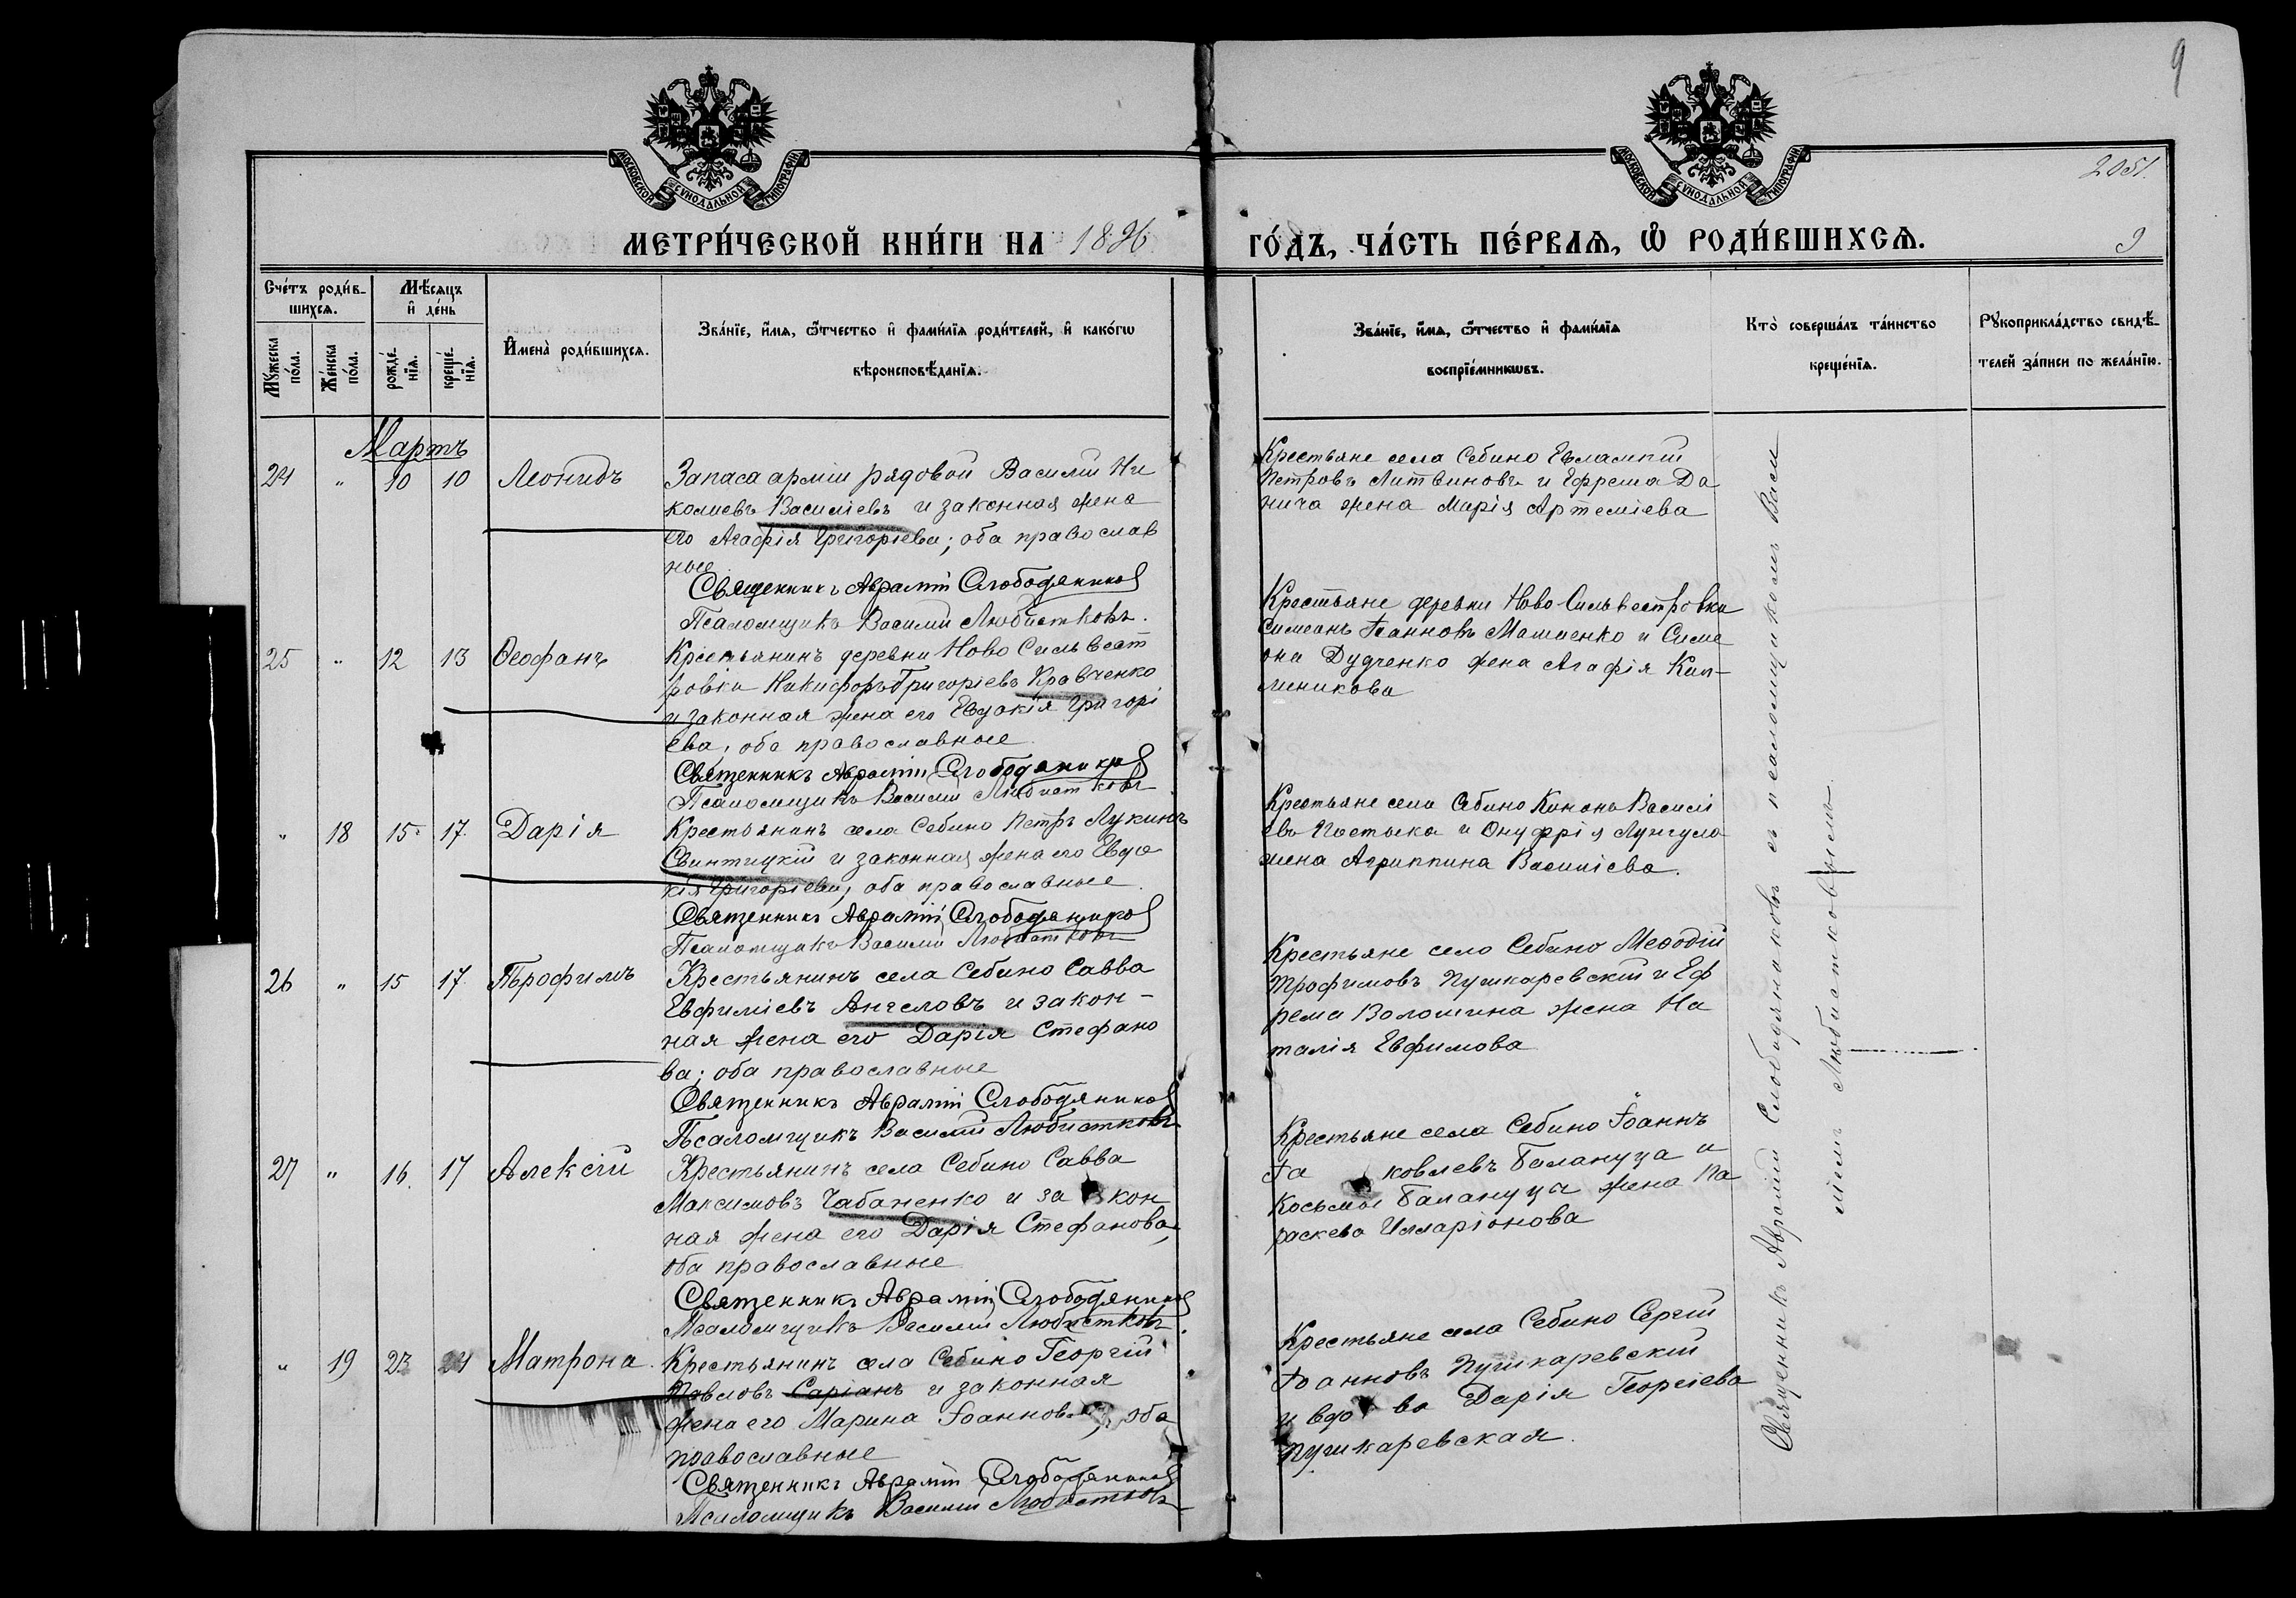 9
МОСКОВСКОЙ СѴНОДАЛЬНОЙ ТИПОГРАФІИ
МОСКОВСКОЙ СѴНОДАЛЬНОЙ ТИПОГРАФІИ
2051.
МЕТРИ́ЧЕСКОЙ КНИ́ГИ НА 1896
ГО́ДЪ, ЧА́СТЬ ПЕ́РВАЯ, Ѽ РОДИ́ВШИХСѦ.
9
Счéтъ роди́в-
шихсѧ.
Мѣ́сяцъ
и҆ дéнь
Мꙋ́жеска
по́ла.
Жéнска
по́ла.
рождé-
нїѧ.
крещé-
нїѧ.
И҆менà роди́вшихсѧ.
Звáнїе, и҆́мѧ, ѻ҆́тчество и҆ фами́лїѧ роди́телей, и҆ какóгѡ
вѣроисповѣ́данїѧ.
Звáнїе, и҆́мѧ, ѻ҆́тчество и҆ фами́лїѧ
воспрїéмникѡвъ.
Ктò совершáлъ тáинство
крещéнїѧ.
Рꙋкоприклáдство свидѣ́-
телей зáписи по желáнїю.
Мартъ
24 " 10 10 Леонидъ
Запаса арміи рядовой Василій Ни
колаевъ Василіевъ и законная жена
его Агафія Григоріева; оба православ
ные
Священникъ Аврамій Слободяниковъ
Псаломщикъ Василій Любистковъ.
Крестьяне села Себино Евлампій
Петровъ Литвиновъ и Ефрема Да
нича жена Марія Артеміева
25 " 12 13 Ѳеофанъ
Крестьянинъ деревни Ново Сильвест
ровки Никифоръ Григоріевъ Кравченко
и законная жена его Евдокія Григорі
ева, оба православные
Священникъ Аврамій Слободяниковъ
Псаломщикъ Василій Любистковъ
Крестьяне деревни Ново-Сильвестровки
Симеонъ Іоанновъ и Симе
она Дудченко жена Агафія
" 18 15 17 Дарія
Крестьянинъ села Себино Петръ Лукинъ
Свинтицкій и законная жена его Евдо
кія Григоріева, оба православные.
Священникъ Аврамій Слободяниковъ
Псаломщикъ Василій Любистковъ
Крестьяне села Себино Кононъ Василі
евъ и Онуфрія Лунгула
жена Агриппина Василіева.
26 " 15 17 Трофимъ
Крестьянинъ села Себино Савва
Евфиміевъ Ангеловъ и закон-
ная жена его Дарія Стефано
ва; оба православные
Священникъ Аврамій Слободяниковъ
Псаломщикъ Василій Любистковъ
Крестьяне село Себино Меѳодій
Трофимовъ Пушкаревскій и Еф
рема Волошина жена На
талія Евфимова
27 " 16 17 Алексій
Крестьянинъ села Себино Савва
Максимовъ Чабаненко и за кон
ная жена его Дарія Стефанова,
оба православные
Священникъ Аврамій Слободяниковъ
Псаломщикъ Василій Любистковъ.
Крестьяне села Себино Іоаннъ
Іа ковлевъ Балануца и
Косьмы Балануца жена Па
раскева Илларіонова
" 19 23 24 Матрона
Крестьянинъ села Себино Георгій
Павловъ Саріанъ и законная
жена его Марина Іоаннова, оба
православные
Священникъ Аврамій Слободяниковъ
Псаломщикъ Василій Любистковъ
Крестьяне села Себино Сергій
Іоанновъ Пушкаревскій
и вдо ва Дарія Георгіева
Пушкаревская.
Священникъ Аврамій Слободяниковъ съ псаломщикомъ Васи
ліемъ Любистковымъ.